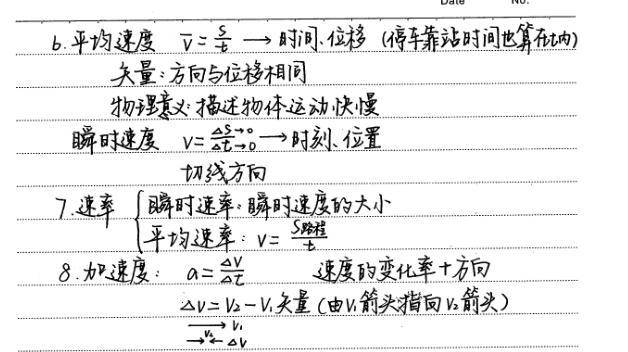 Date No.
6.平均速度 v̅=S/t → 时间、位移 (停车靠站时间也算在t内)
矢量:方向与位移相同
物理意义:描述物体运动快慢
瞬时速度 v=ΔS→0/Δt→0 → 时刻、位置
切线方向
7.速率 { 瞬时速率:瞬时速度的大小
平均速率:v=S路程/t
8.加速度: a=ΔV/Δt 速度的变化率+方向
ΔV=V₂-V₁矢量(由V₁箭头指向V₂箭头)
V₁
V₂ ΔV